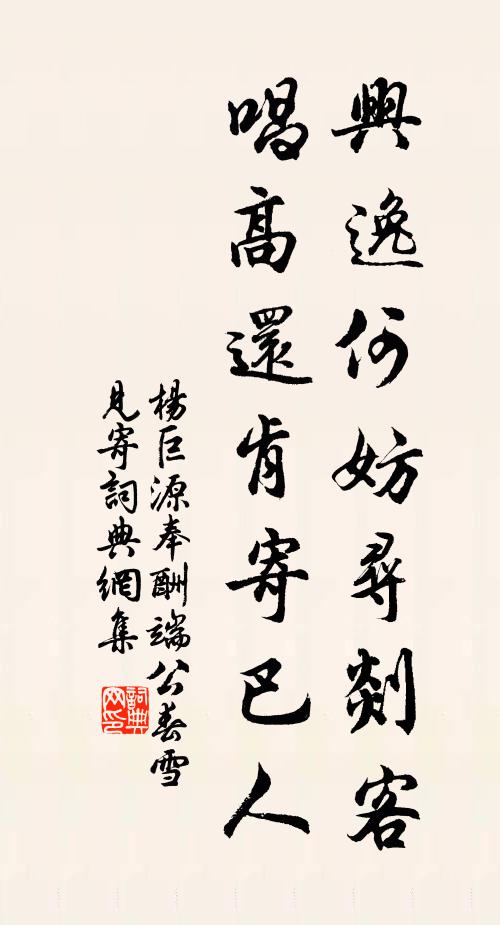 興逸何妨尋剡客
唱高還肯寄巴人
楊巨源奉酬端公春雪
見寄詞典網集
詞典网印